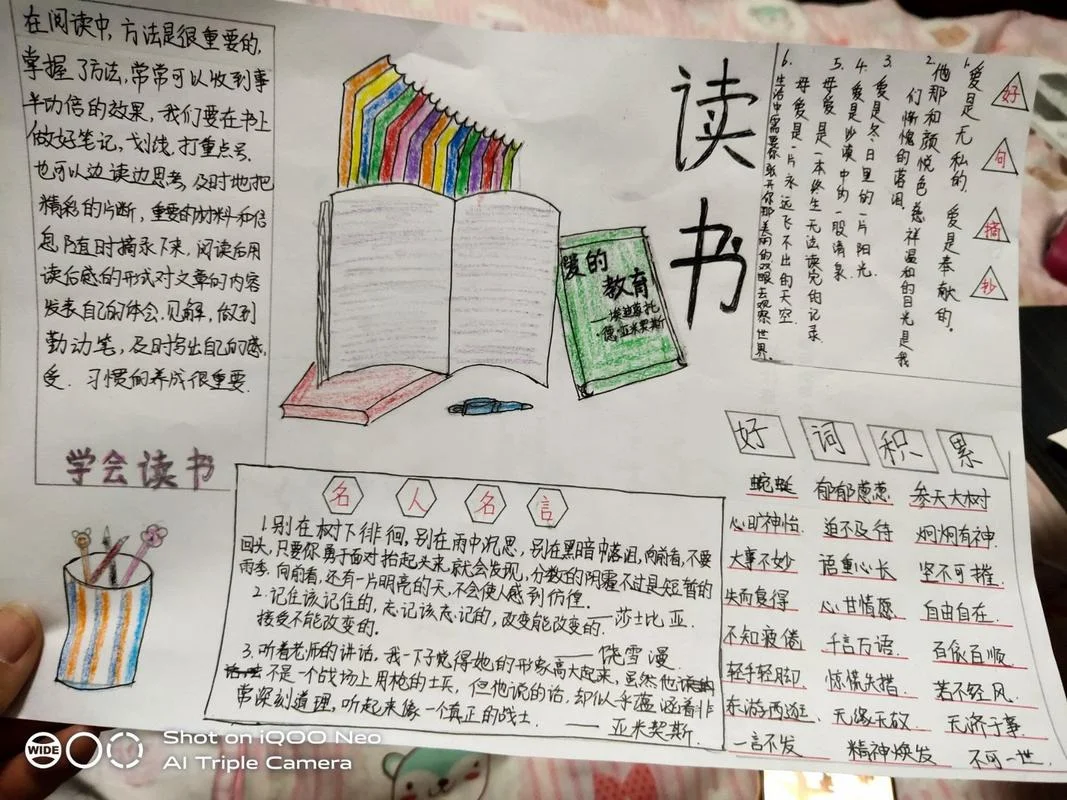 在阅读中,方法是很重要的,
掌握了方法,常常可以收到事
半功倍的效果,我们要在书上
做好笔记,划线,打重点号,
也可以边读边思考,及时地把
精彩的片断,重要的材料和信
息随时摘录下来,阅读后用
读后感的形式对文章的内容
发表自己的体会、见解,做到
勤动笔,及时写出自己的感
受.习惯的养成很重要.
学会读书
爱的
教育
——埃迪蒙托
德·亚米契斯
读书
好句摘抄
1.爱是无私的,爱是奉献的。
2.他那和颜悦色慈祥温和的目光是我
们惭愧的落泪.
3.爱是冬日里的一片阳光.
4.爱是沙漠中的一股清泉.
5.母爱是一本终生无法读完的记录.
母爱是一片永远飞不出的天空.
6.生活中需要你张开你那美丽的双眼去观察世界.
名人名言
1.别在树下徘徊,别在雨中沉思,别在黑暗中落泪,向前看,不要
回头,只要你勇于面对抬起头来,就会发现,分数的阴霾不过是短暂的
雨季.向前看,还有一片明亮的天,不会使人感到彷徨.
2.记住该记住的,忘记该忘记的,改变能改变的.——莎士比亚.
接受不能改变的.
——饶雪漫.
3.听着老师的讲话,我一下子觉得她的形象高大起来,虽然他
不是一个战场上用枪的士兵,但他说的话,却似乎蕴涵着非
常深刻道理,听起来像一个真正的战士.
——亚米契斯.
好词积累
蜿蜒 郁郁葱葱 参天大树
心旷神怡 迫不及待 炯炯有神
大事不妙 语重心长 坚不可摧
失而复得 心甘情愿 自由自在
不知疲倦 千言万语 百依百顺
轻手轻脚 惊慌失措 若不轻风
东游西逛 天缘天故 无济于事
一言不发 精神焕发 不可一世
WIDE
Shot on iQOO Neo
AI Triple Camera